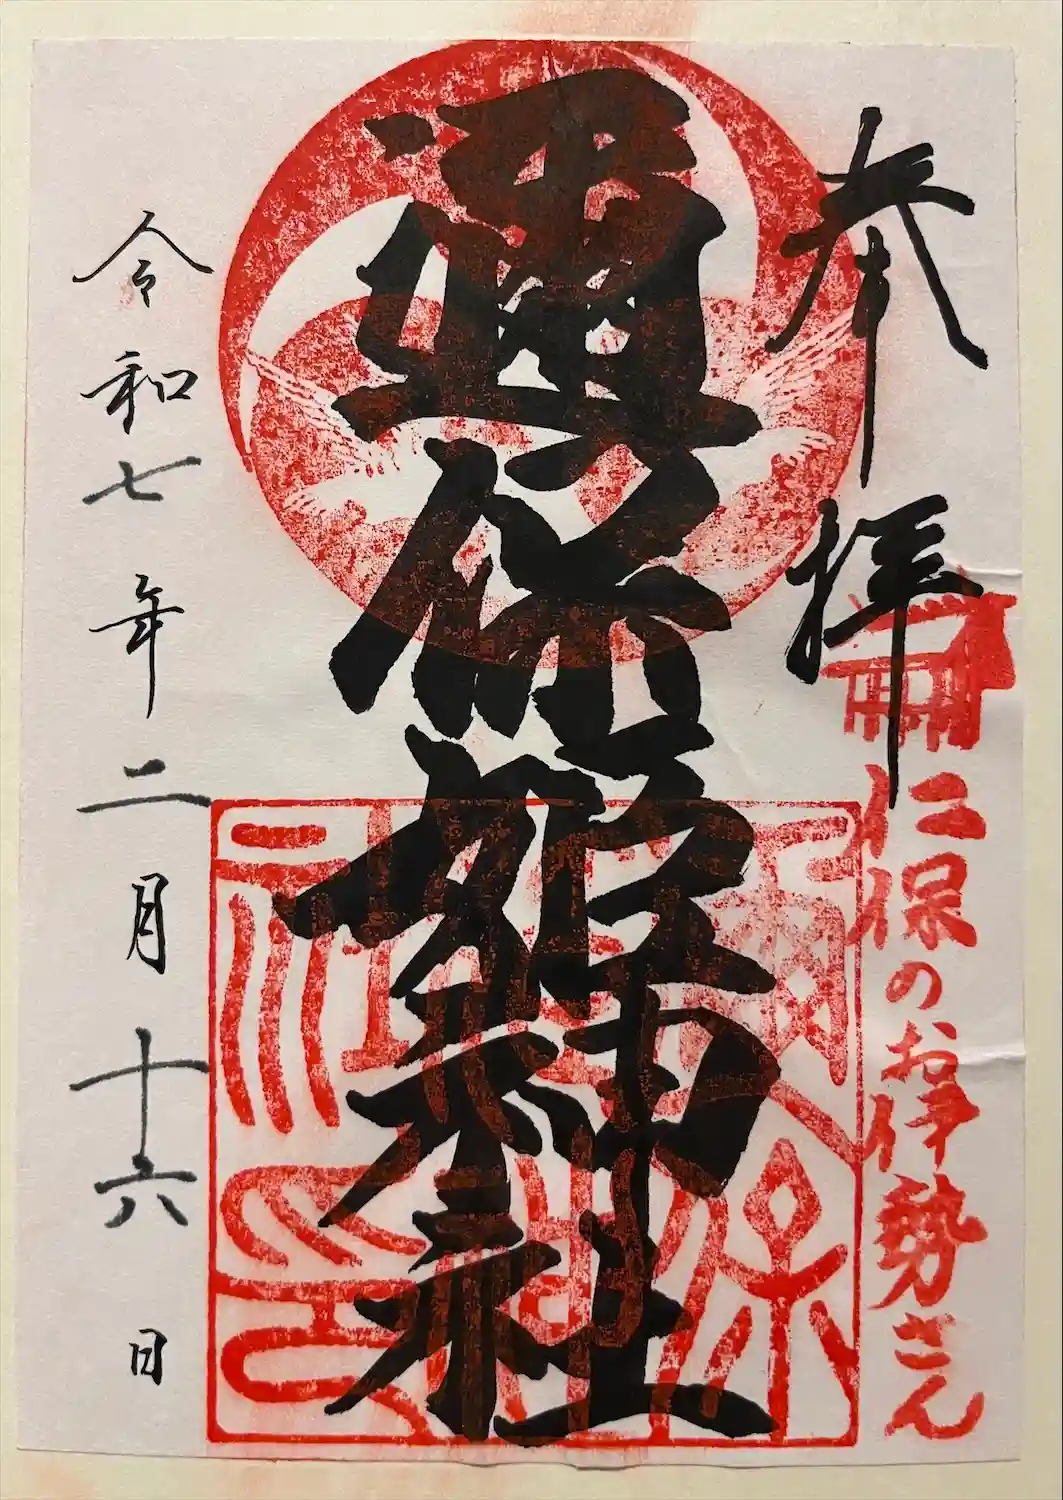 参拝
仁保のお伊勢さん
邇保姫神社
令和七年二月十六日